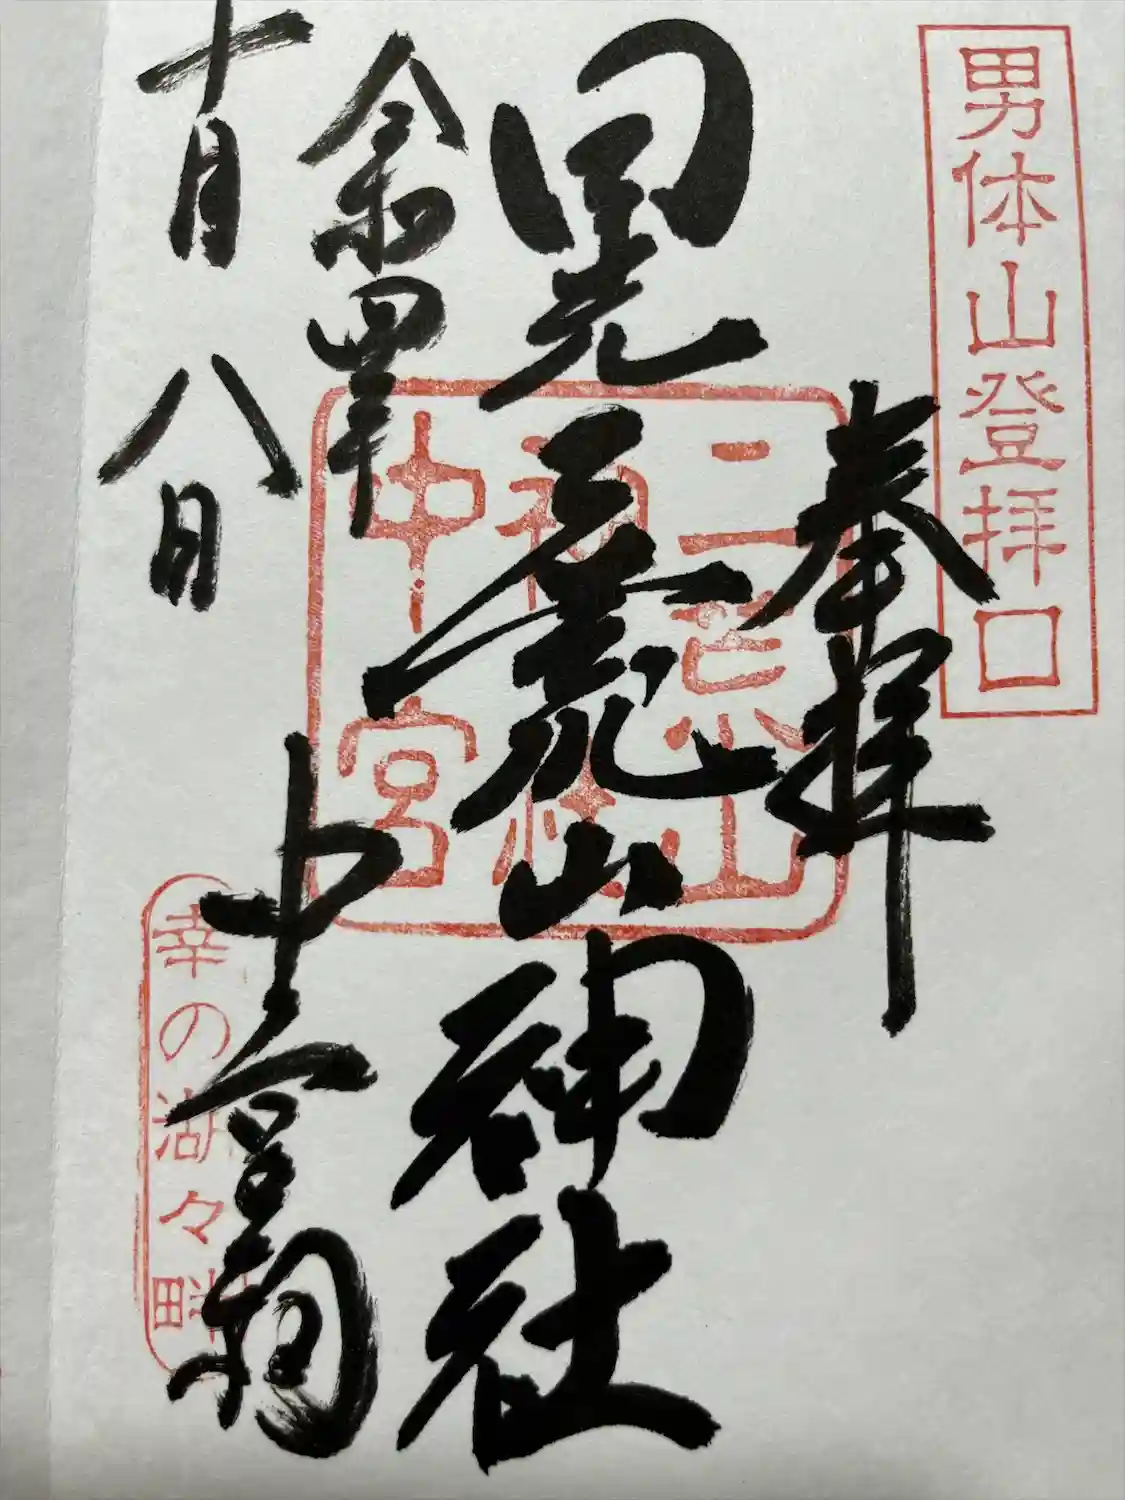 男体山登拝口
奉拝
日光二荒山神社
二荒山
神社
中宮
令和四年
中宮祠
十月八日
幸の湖々畔